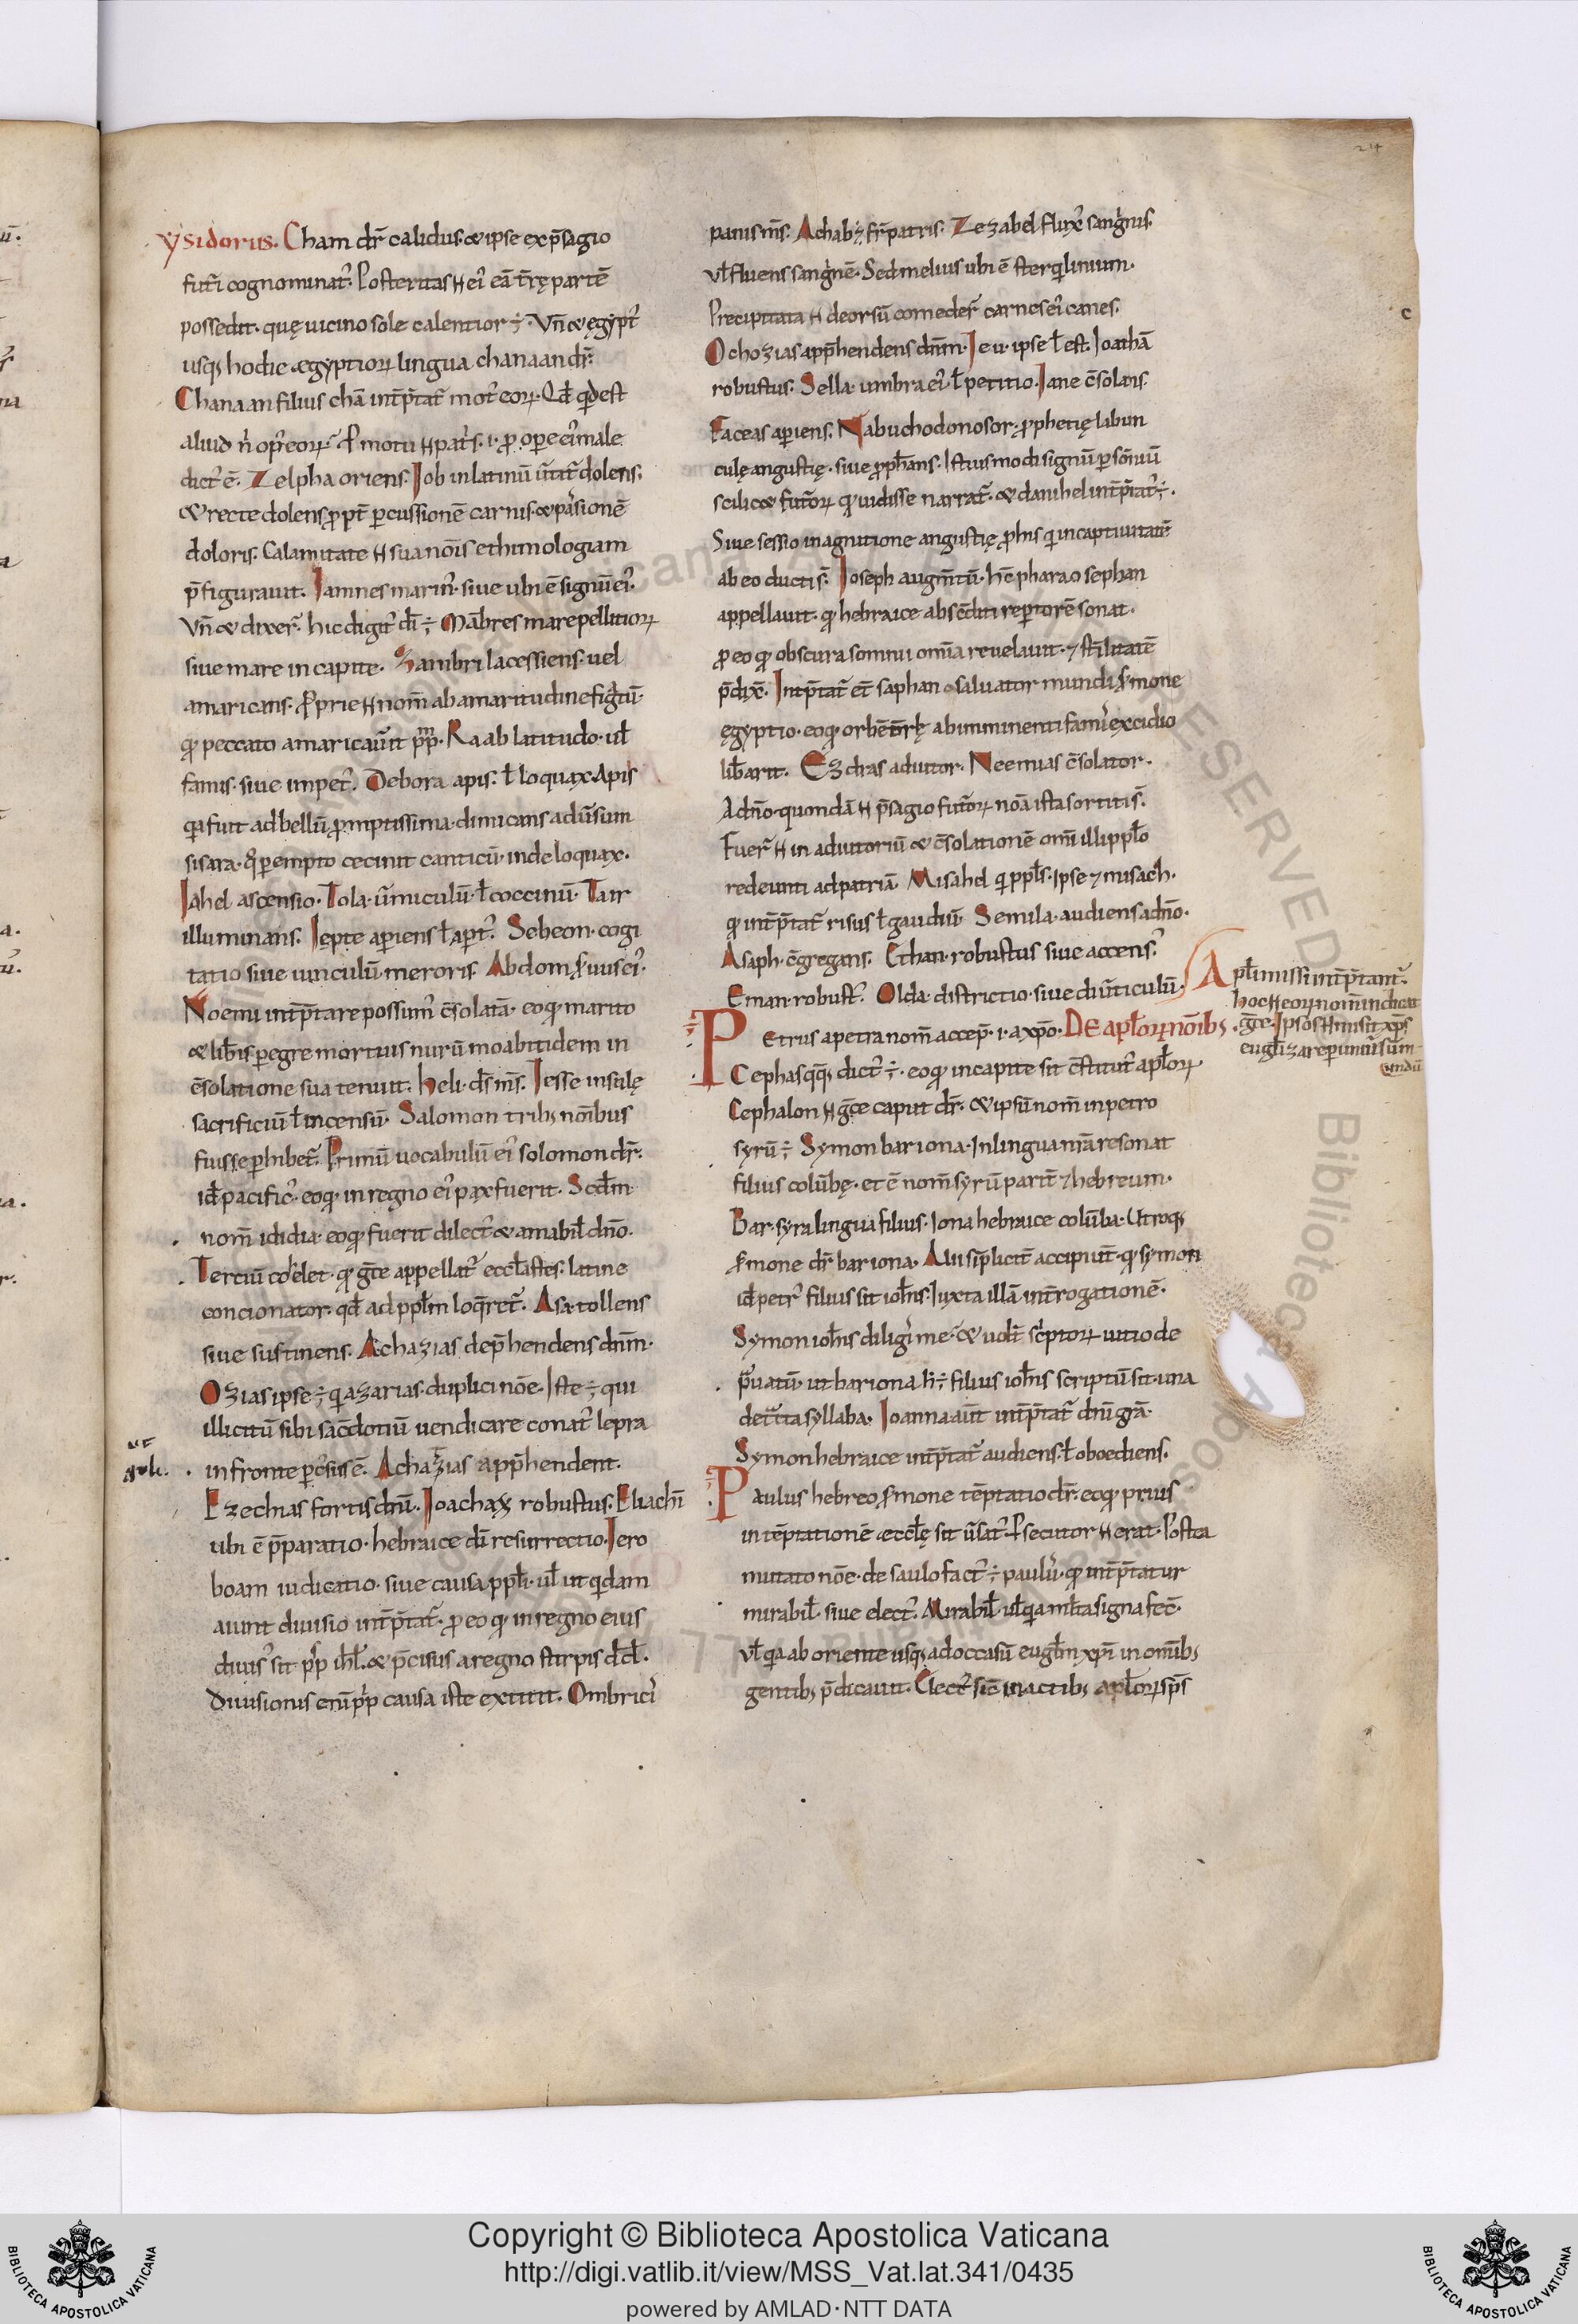 214
ysidorus. Cham dr̄ calidus. & ipse ex p̄sagio
futri cognominat᷒. Posteritas ħ ei᷒ eā t̄rę partē
possedit. quę uicino sole calentior ÷. Vn̄ & ęgypt᷒
usq; hodie ægyptioꝝ lingua chanaan dr̄.
Chanaan filius chā int̄p̄tat᷒ mot᷒ eoꝝ. Qd̄ qd est
aliud n̄ op᷒ eoꝝ. ꝓ motu ħ pat̄s. i. ꝓ ope ei᷒ male
dict᷒ ē. Zelpha oriens. Iob in latinū ūtit᷒ dolens.
& recte dolens ꝓpt̄ ꝑcussionē carnis. & passionē
doloris. Calamitate ħ sua nōis ethimologiam
p̄figurauit. Iamnes marin᷒. siue ubi ē signū ei᷒.
Vn̄ & dixer̄. hic digit᷒ dī ÷. Mābres mare pellitioꝝ
siue mare in capite. Zambri lacessiens. uel
amaricans. Ꝓprie ħ nom̄ ab amaritudine figtū.
ꝙ peccato amaricauit pp̄m. Raab latitudo. ul̄
famis. siue impet᷒. Debora apis. ł loquax. Apis
qa fuit ad bellū ꝓmptissima. dimicans aduersum
sisara. q̊ ꝑempto cecinit canticū. inde loquax.
Iahel ascensio. Tola. ūmiculū. ł coccinū. Iair
illuminans. Iepte aperiens ł apt᷒. Sebeon. cogi
tatio siue uinculū meroris. Abdom seruus ei᷒.
Noemi int̄p̄tare possum᷒ c̄solatā. eo ꝙ marito
& lib̄is peregre mortuis nurū moabitidem in
c̄solatione sua tenuit. Heli. ds̄ ms̄. Iesse insulę
sacrificiū ł incensū. Salomon trib; nōibus
fuisse ꝑhibet᷒. Primū uocabulū ei᷒ solomon dr̄.
id̄ pacific᷒. eo ꝙ in regno ei᷒ pax fuerit. Scd̄m
nom̄ ididia. eo ꝙ fuerit dilect᷒ & amabil̄ dn̄o.
Terciū coelet. ꝙ gc̄e appellat᷒ eccl̄astes. latine
concionator. qd̄ ad ppl̄m loq̄ret᷒. Asa. tollens
siue sustinens. Achazias dep̄hendens dn̄m.
Ozias ipse ÷ qi azarias. duplici nōe. Iste ÷ qui
illicitū sibi sac̄dotiū uendicare conat᷒ lepra
in fronte ꝑcussus ē. Achazias app̄hendent.
Ezechias fortis dn̄ū. Ioachaz robustus. Eliachī
ubi ē p̄paratio. hebraice dī resurrectio. Iero
boam iudicatio. siue causa ppl̄i. ul̄ ut qidam
aiunt diuisio int̄p̄tat᷒. ꝓ eo ꝙ in regno eius
diuis᷒ sit ppl̄s ihl̄. & p̄cisus a regno stirpis dd̄.
Diuisionis enī ppl̄i causa iste extitit. Ombri ci᷒
panis ms̄. Achab ÷ fr̄ patris. Zezabel flux᷒ sang̊nis.
ul̄ fluens sang̊nē. Sed melius ubi ē sterqlinium.
Precipitata ħ deorsū comeder̄ carnes ei᷒ canes.
Ochozias app̄hendens dn̄m. Ieu. ipse ł est. Ioathā
robustus. Sella. umbra ei᷒. ł petitio. Iane c̄solans.
Faceas apiens. Nabuchodonosor. ꝓphetię labun
culę angustię. siue ꝓphans. Istiusmodi signū ꝑ somniū
scilic& futuroꝝ ꝙ uidisse narrat᷒. & danihel int̄p̄tat᷒ ÷.
Siue sessio in agnitione angustię ꝓ his qi in captiuitatē
ab eo ducti s̄. Ioseph augm̄tū. hc̄ pharao sephan
appellauit. ꝙ hebraice absc̄diti repertorē sonat.
ꝓ eo ꝙ obscura somnii omīa reuelauit. ⁊ sterilitatē
p̄dix̄. Int̄p̄tat᷒ et̄ saphan saluator mundi sermone
ęgyptio. eo ꝙ orbē t̄rę ab imminenti famis excidio
lib̄arit. Ezdras adiutor. Neemias c̄solator.
A dn̄o. quondā ħ p̄sagio futuroꝝ nōa ista sortiti s̄.
Fuer̄ ħ in adiutoriū & c̄solationē omī illi ppl̄o
redeunti ad patriā. Misahel qi ppl̄s. ipse ⁊ misach.
ꝙ int̄p̄tat᷒ risus ł gaudiū. Semila. audiens a dn̄o.
Asaph. c̄gregans. Ethan. robustus siue accens᷒.
Eman. robust᷒. Olda. districtio. siue diūticulū.
Petrus a petra nom̄ accep̄. i. a xp̄o. DE apl̄oꝝ nōib;.
Cephas qq; dict᷒ ÷. eo ꝙ in capite sit c̄stitut᷒ apl̄oꝝ.
Cephalon ħ gc̄e caput dr̄. & ipsū nom̄ in petro
syrū ÷. Symon bar iona. In lingua nr̄a resonat
filius colūbę. et ē nom̄ syrū parit᷒ ⁊ hebreum.
Bar. syra lingua filius. Iona hebraice colūba. Utroq;
sermone dr̄ bar iona. Alii siplicit᷒ accipiūt. ꝙ symon
id̄ petr᷒ filius sit ioh̄nis. Iuxta illā int̄rogationē.
Symon ioh̄nis diligis me. & uolt᷒ sc̄ptoꝝ uitio de
p̄uatū. ut bar iona h̄ ÷ filius ioh̄nis scriptū sit. una
detracta syllaba. Ioanna aut̄ int̄p̄tat᷒ dn̄i gr̄a.
Symon hebraice int̄p̄tat᷒ audiens. ł oboediens.
Paulus hebreo sermone tēptatio dr̄. eo ꝙ prius
in tēptationē æccl̄ę sit ūsat᷒. Ꝑsecutor ħ erat. Postea
mutato nōe. de saulo fact᷒ ÷ paulus. ꝙ int̄p̄tatur
mirabil̄. siue elect᷒. Mirabil̄. ul̄ qa ml̄ta signa fec̄.
Vl̄ qa ab oriente usq; ad occasū eugl̄m xp̄i in omīb;
gentib; p̄dicauit. Elect᷒ sic̄ in actib; apl̄oꝝ sp̄s
Apl̄i missi int̄p̄tant᷒.
hoc ħ eoꝝ nom̄ indicat
gc̄e. Ipsos ħ misit xp̄s
eugl̄izare ꝑ uniūsum
mundū
Copyright © Biblioteca Apostolica Vaticana
http://digi.vatlib.it/view/MSS_Vat.lat.341/0435
powered by AMLAD·NTT DATA
BIBLIOTECA APOSTOLICA VATICANA
BIBLIOTECA APOSTOLICA VATICANA